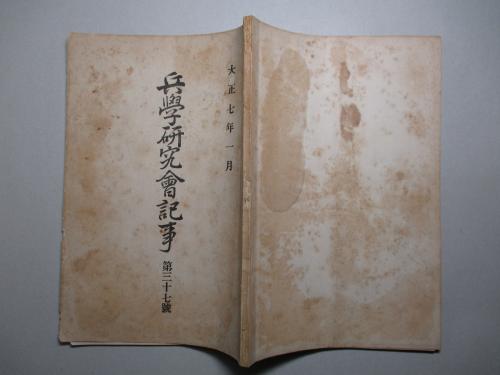 大正七年一月
兵學研究會記事 第三十七號